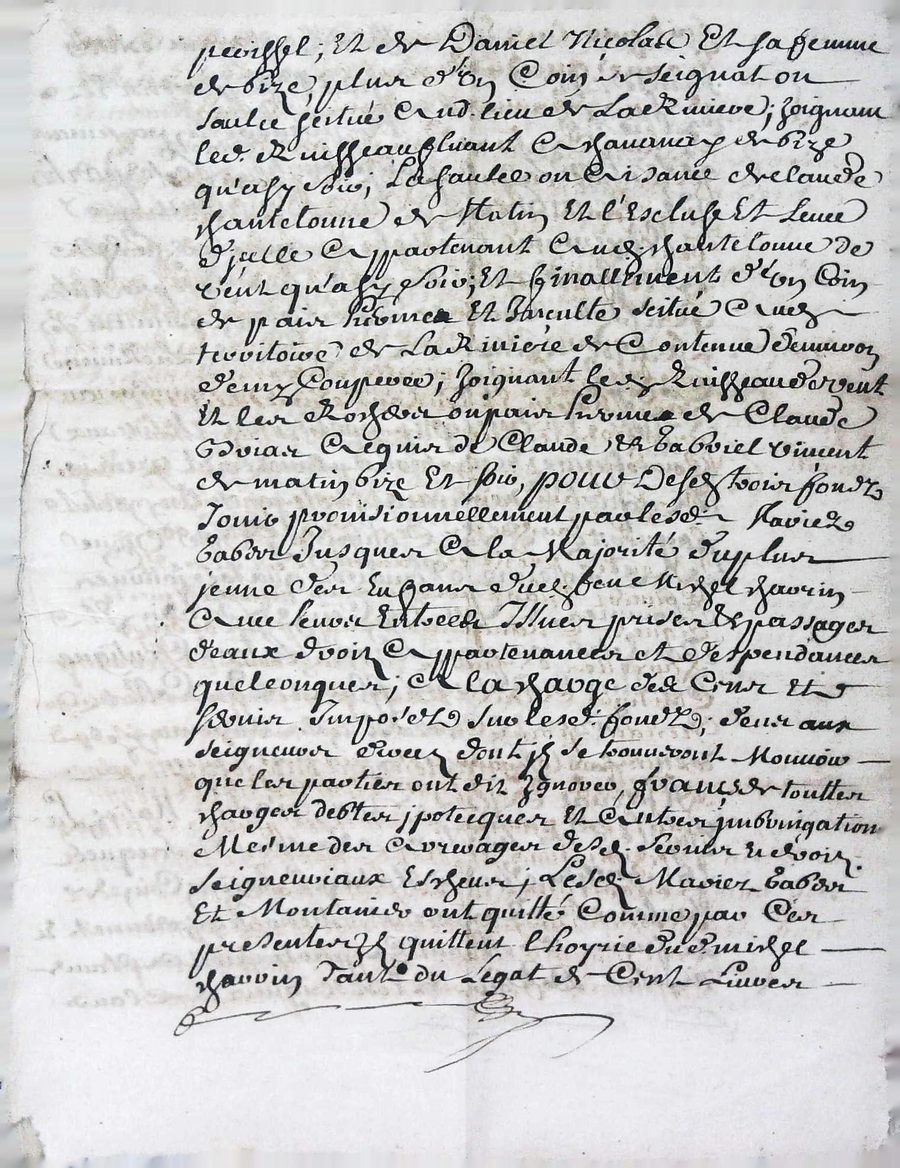 peissel; Et de Daniel Nicolas Et sa femme
de bize plus d'un Coin de seignat ou
saulée scitué Aud. lieu de La Riviere; Joignant
led. Ruisseau fluant A chavanay de bize
qu'assy soir; La saulee ou aisance de Claude
chantelonne de Matin Et l'Escluse Et Levee
d'jcelle Appartenant Aud. chantelonne de
vent qu'assy soir; Et finallement d'un Coin
de pais herme Et Inculte scitué Aud.
territoire de La Riviere de Contenue d'environ
demy Couperee; Joignant led. Ruisseau de vent
Et les Rochers ou pais hermes de Claude
Acquis de Claude Et Gabriel vincent
de matin bize Et soir, pour Desd. trois fondz
Jouir provisionnellement par lesd. Mariez
Jusques A la Majorité du plus
jeune des Enfans dud. feu Michel charvin
Avec leurs Entrees Issues prises Et passages
d'eaux droitz Appartenances et despendances
quelconques; A la charge des Cens Et
servis Imposez sur lesd. fondz; deus aux
seigneurs de ceux dont jl se trouveront Mouvoir
que les parties ont dit Ignorer, francs de touttes
charges debtes jpotecques et Autres jmbringation
Mesme des Arrerages desd. servis Et droitz
seigneuriaux Escheus; Lesd. Mariez
Et ont quitté Comme par Ces
presentes Jls quittent l'hoyrie dud. michel
charvin Tant du Legat de Cent Livres